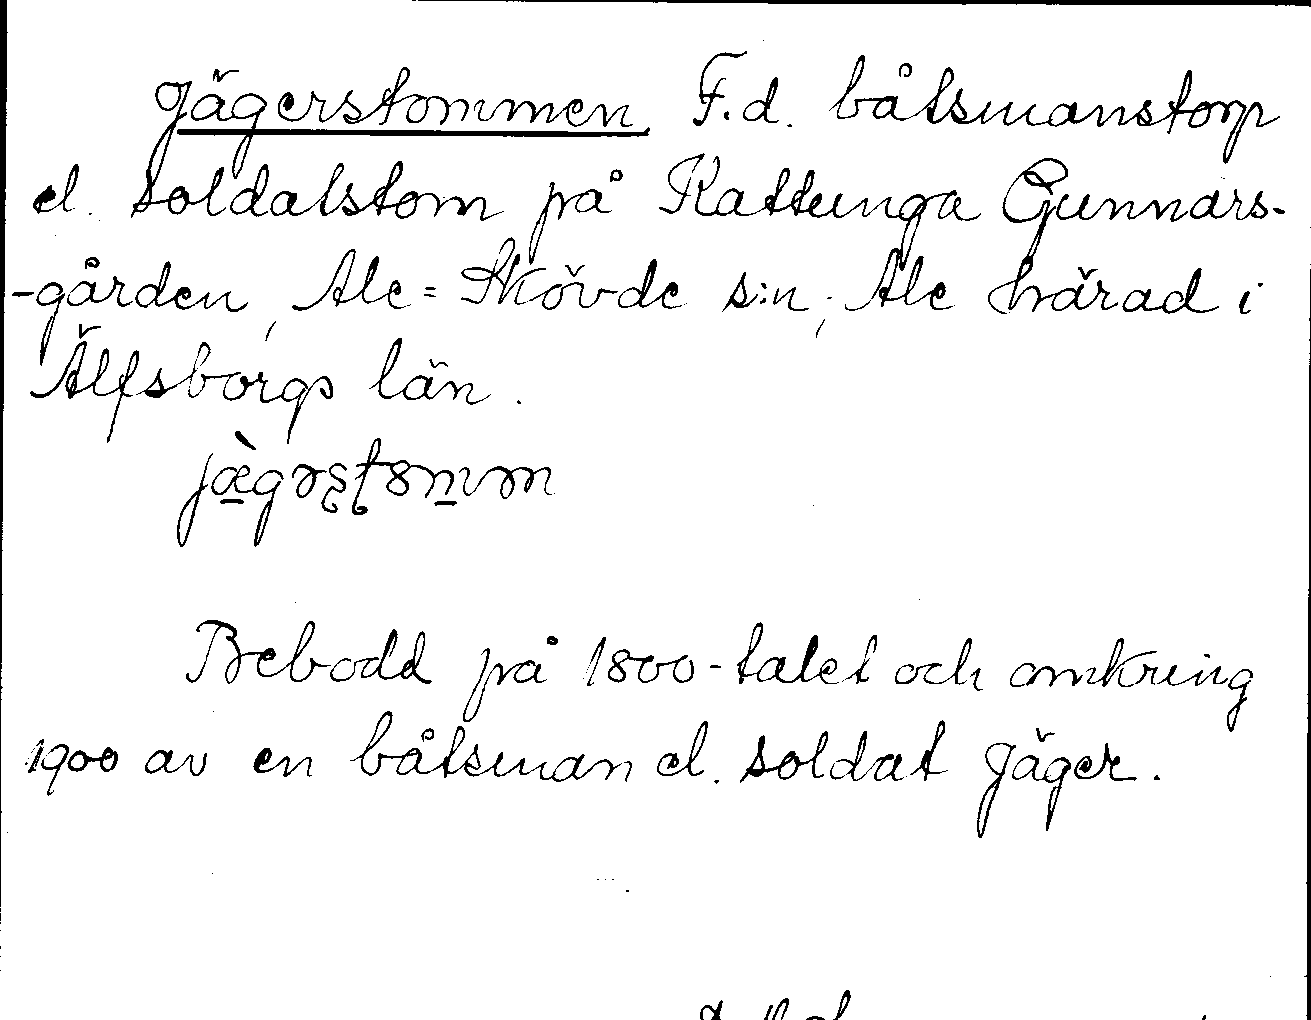 Jägerstommen F.d. båtsmanstorp
el. soldatstom på Kattunga Gunnars-
-gården, Ale-Skövde s:n, Ale härad i
Älfsborgs län.
Bebodd på 1800-talet och omkring
1900 av en båtsman el. soldat Jäger.